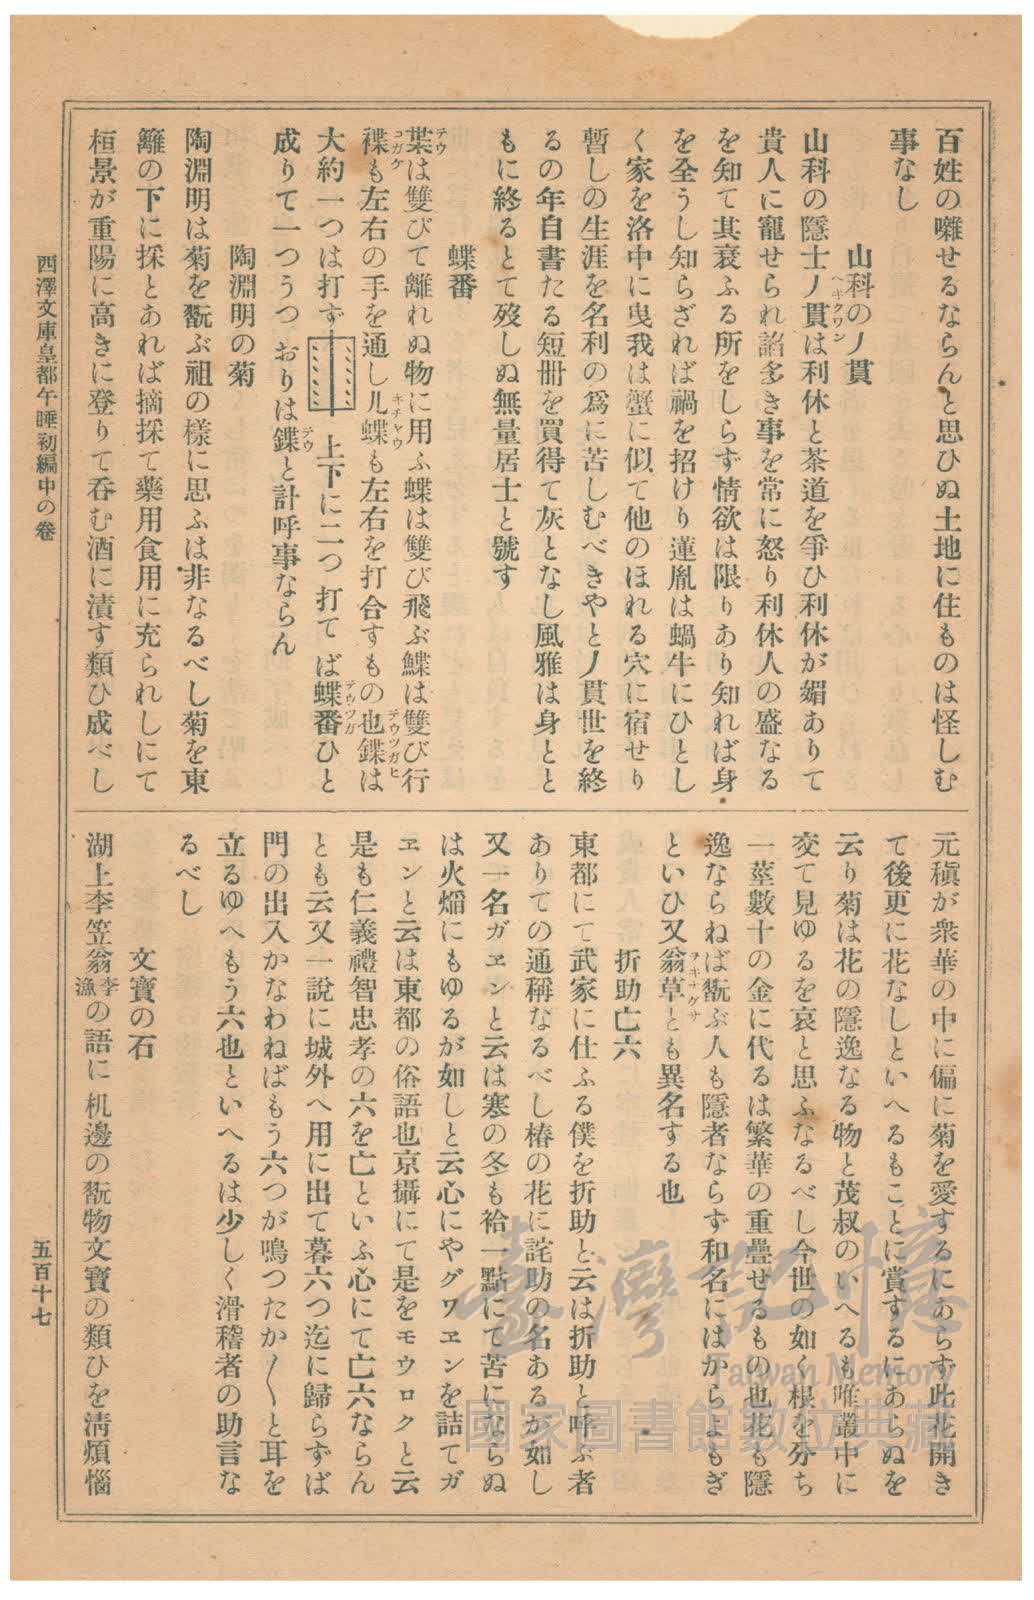 百姓の囃せるならんと思ひぬ土地に住ものは怪しむ
事なし
山科のノ貫
山科の隱士ノ貫は利休と茶道を爭ひ利休が媚ありて
ヘキクワン
貴人に寵せられ諂多き事を常に怒り利休人の盛なる
を知て其衰ふる所をしらず情欲は限りあり知れば身
を全うし知らざれば禍を招けり蓮胤は蝸牛にひとし
く家を洛中に曳我は蟹に似て他のほれる穴に宿せり
暫しの生涯を名利の爲に苦しむべきやとノ貫世を終
るの年自書たる短册を買得て灰となし風雅は身とと
もに終るとて歿しぬ無量居士と號す
蝶番
葉は雙びて離れぬ物に用ふ蝶は雙び飛ぶ鰈は雙び行
テウ
褋も左右の手を通し几蝶も左右を打合すもの也鍱は
コガケ
キチャウ
テウツガヒ
大約一つは打ず 上下に二つ打てば蝶番ひと
テウツガ
成りて一つうつ おりは鍱と計呼事ならん
テウ
陶淵明の菊
陶淵明は菊を翫ぶ祖の樣に思ふは非なるべし菊を東
籬の下に採とあれば摘採て藥用食用に充られしにて
桓景が重陽に高きに登りて呑む酒に漬す類ひ成べし
元稹が衆華の中に偏に菊を愛するにあらず此花開き
て後更に花なしといへるもことに賞するにあらぬを
云り菊は花の隱逸なる物と茂叔のいへるも唯叢中に
交て見ゆるを哀と思ふなるべし今世の如く根を分ち
一莖數十の金に代るは繁華の重疊せるもの也花も隱
逸ならねば翫ぶ人も隱者ならず和名にはからよもぎ
といひ又翁草とも異名する也
ヲキナグサ
折助亡六
東都にて武家に仕ふる僕を折助と云は折助と呼ぶ者
ありての通稱なるべし椿の花に詫助の名あるが如し
又一名ガヱンと云は寒の冬も袷一點にて苦にならぬ
は火焔にもゆるが如しと云心にやグワヱンを詰てガ
ヱンと云は東都の俗語也京攝にて是をモウロクと云
是も仁義禮智忠孝の六を亡といふ心にて亡六ならん
とも云又一說に城外へ用に出て暮六つ迄に歸らずば
門の出入かなわねばもう六つが鳴つたか〳〵と耳を
立るゆへもう六也といへるは少しく滑稽者の助言な
るべし
文寶の石
湖上李笠翁李漁の語に机邊の翫物文寶の類ひを淸煩惱
西澤文庫皇都午睡初編中の卷
五百十七
臺灣記憶
Taiwan Memory
國家圖書館數位典藏